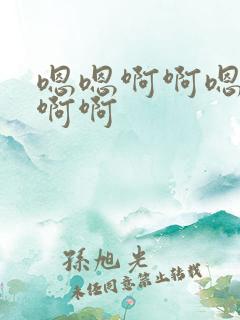 嗯嗯啊啊嗯
啊啊
孫旭光
未经同意禁止转载